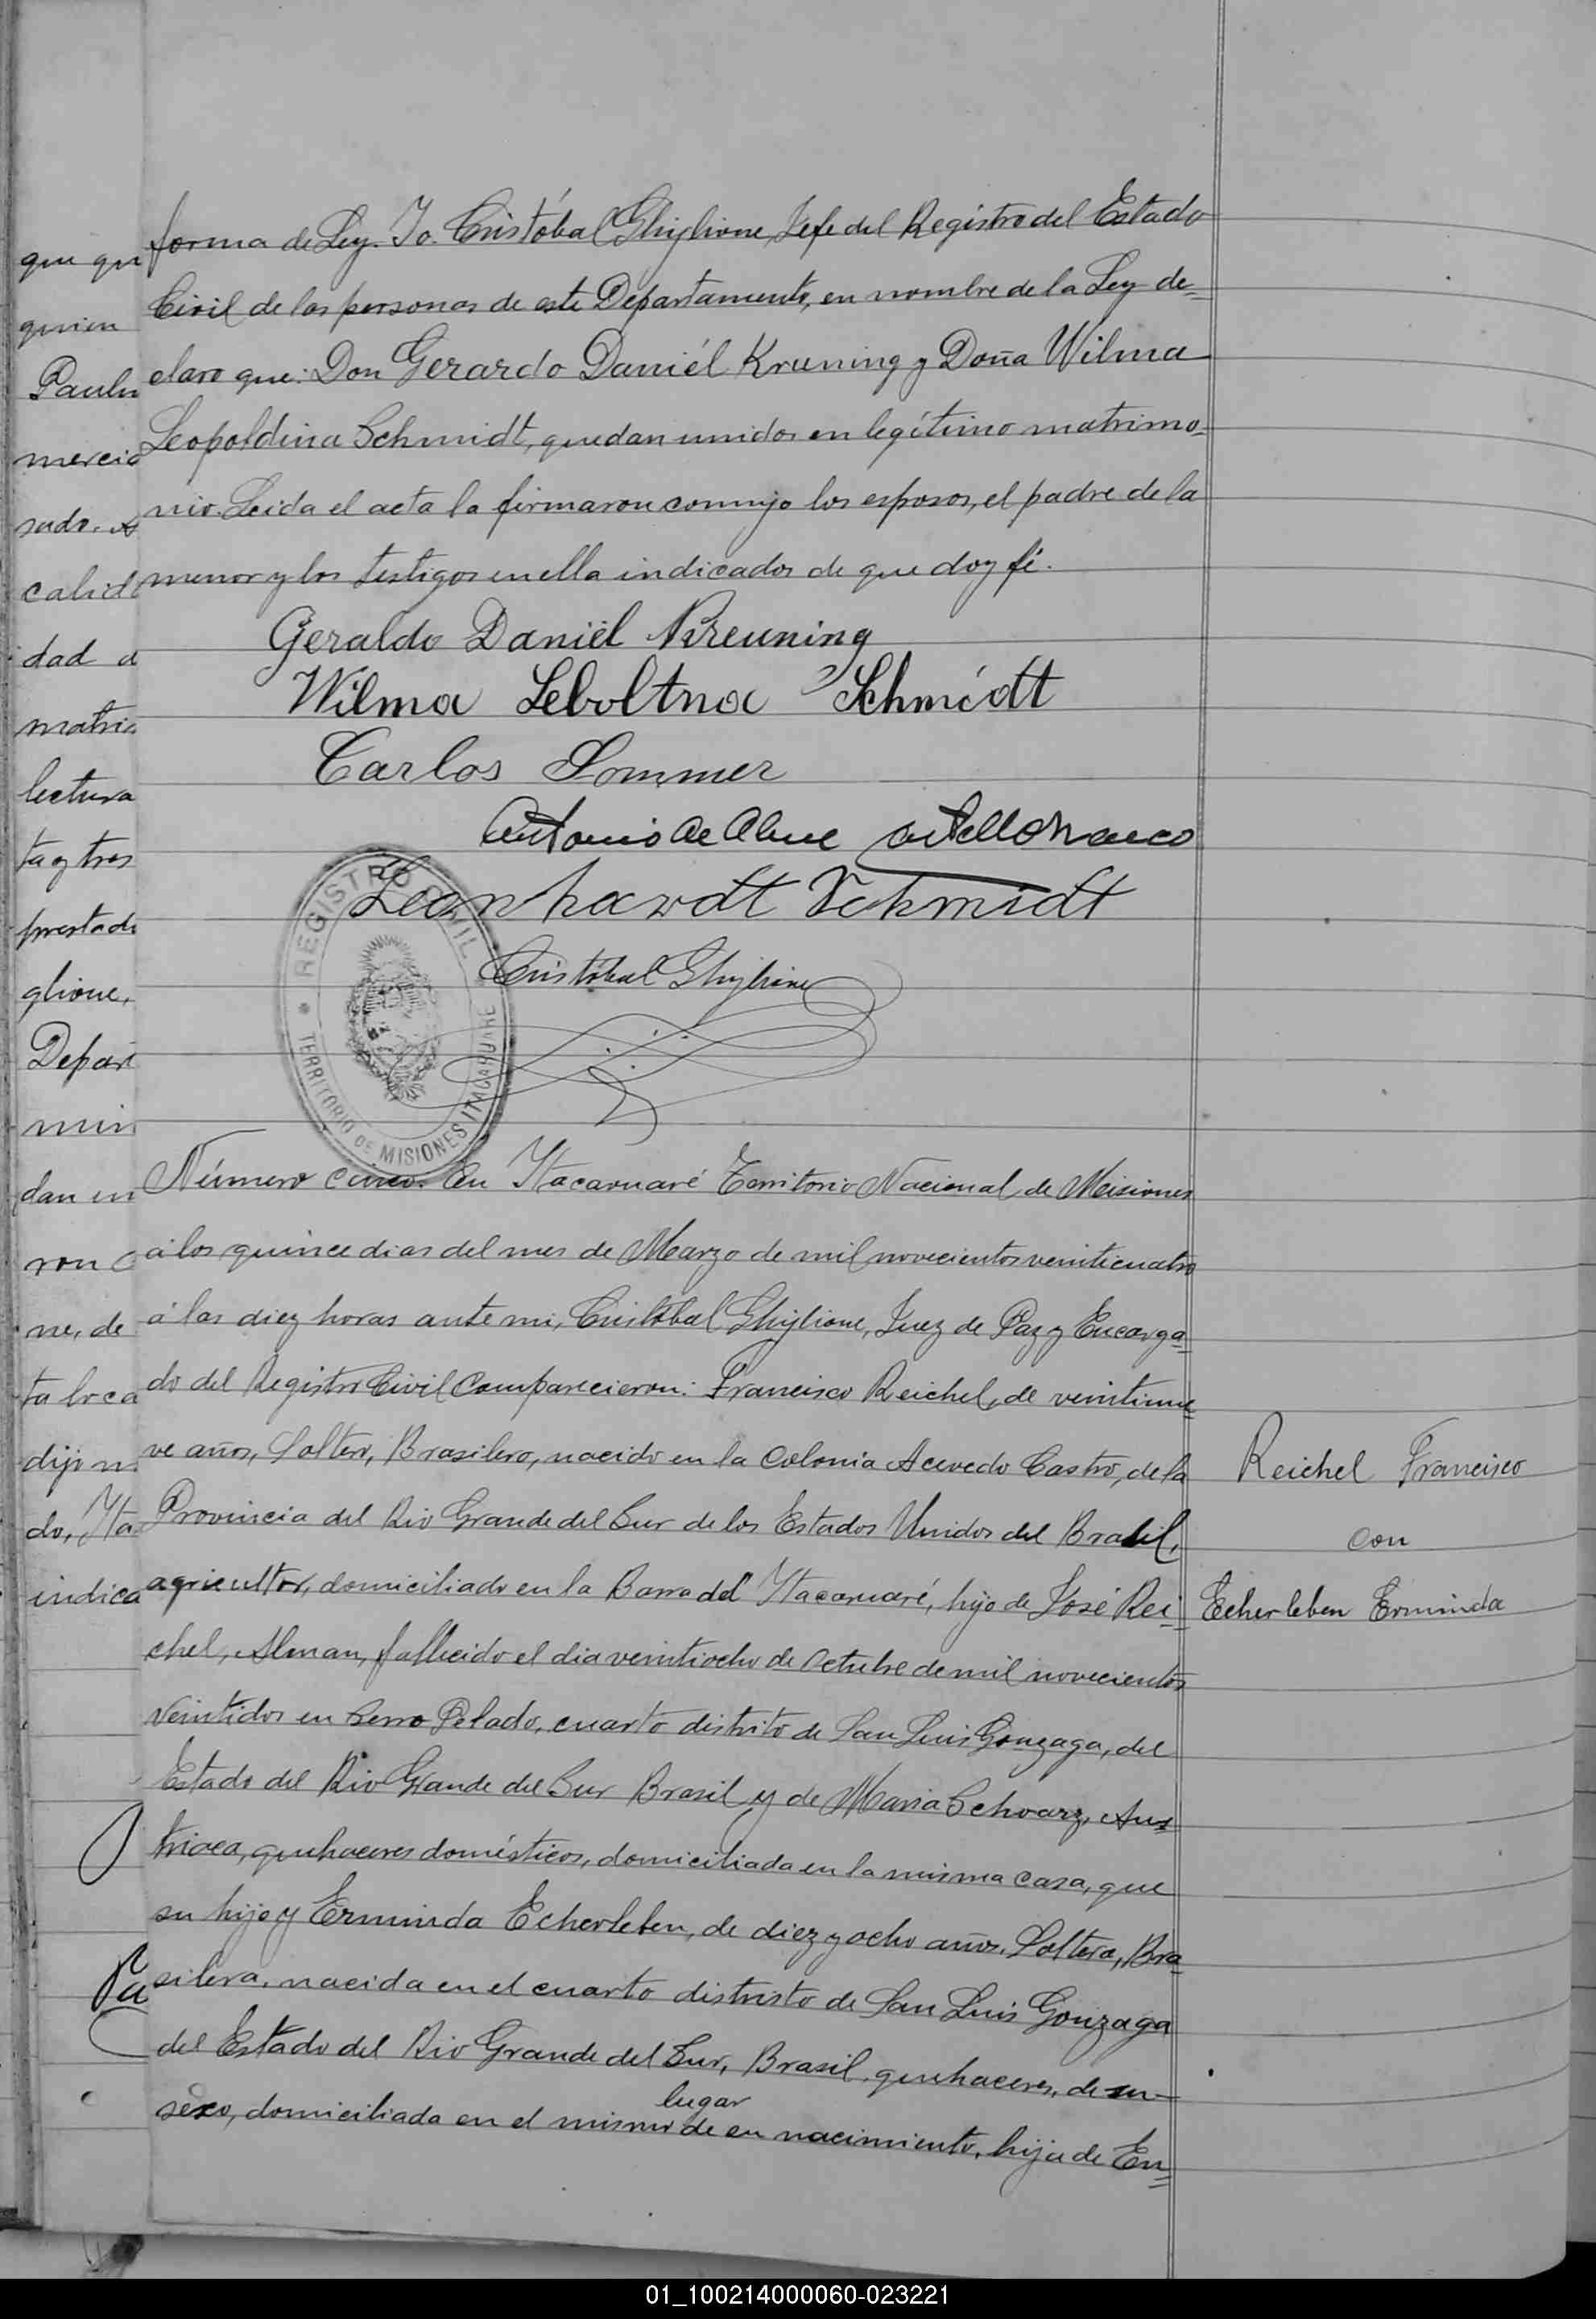 forma de Ley. Yo. Cristóbal Ghiglione, Jefe del Registro del Estado
Civil de las personas de este Departamento, en nombre de la Ley de=
claro que: Don Gerardo Daniél Kruning y Doña Wilma
Leopoldina Schmidt, quedan unidos en legítimo matrimo=
nio. Leida el acta la firmaron conmigo los esposos, el padre de la
menor y los testigos en ella indicados de que doy fé.
Geraldo Daniël Kreuning
Wilma Leboltna Schmidt
Carlos Sommer
Antonio de
Leonhardt Schmidt
Cristóbal Ghiglione
REGISTRO CIVIL
TERRITORIO DE MISIONES ITACARUARE
Número cinco. En Ytacaruaré Territorio Nacional de Misiones
á los quince dias del mes de Marzo de mil novecientos veinticuatro
á las diez horas ante mi, Cristóbal Ghiglione, Juez de Paz y Encarga=
do del Registro Civil Comparecieron: Francisco Reichel, de veintinue=
ve años, Soltero, Brasilero, nacido en la Colonia Acevedo Castro, de la
Provincia del Rio Grande del Sur de los Estados Unidos del Brasil,
agricultor, domiciliado en la Barra del Ytacaruaré, hijo de José Rei=
chel, Alman, fallecido el dia veintiocho de Octubre de mil novecientos
veintidos en Serro Pelado, cuarto distrito de San Luis Gonzaga, del
Estado del Rio Grande del Sur Brasil y de Maria Schoarz, Aus=
triaca, quehaceres domésticos, domiciliada en la misma casa, que
su hijo y Erminda Echerleben, de diez y ocho años, Soltera, Bra=
silera, nacida en el cuarto distristo de San Luis Gonzaga
del Estado del Rio Grande del Sur, Brasil, quehaceres, de su
sexo, domiciliada en el mismo lugar de su nacimiento, hija de En=
Reichel Francisco
con
Echerleben Erminda
que qu
quien
Paulu
mercio
sado. A
calid
dad d
matri
lectura
ta y tres
prestad
glione,
Depar
min
dan un
ron c
ne, de
ta loca
dijo n
do, Yta
indica
01_100214000060-023221